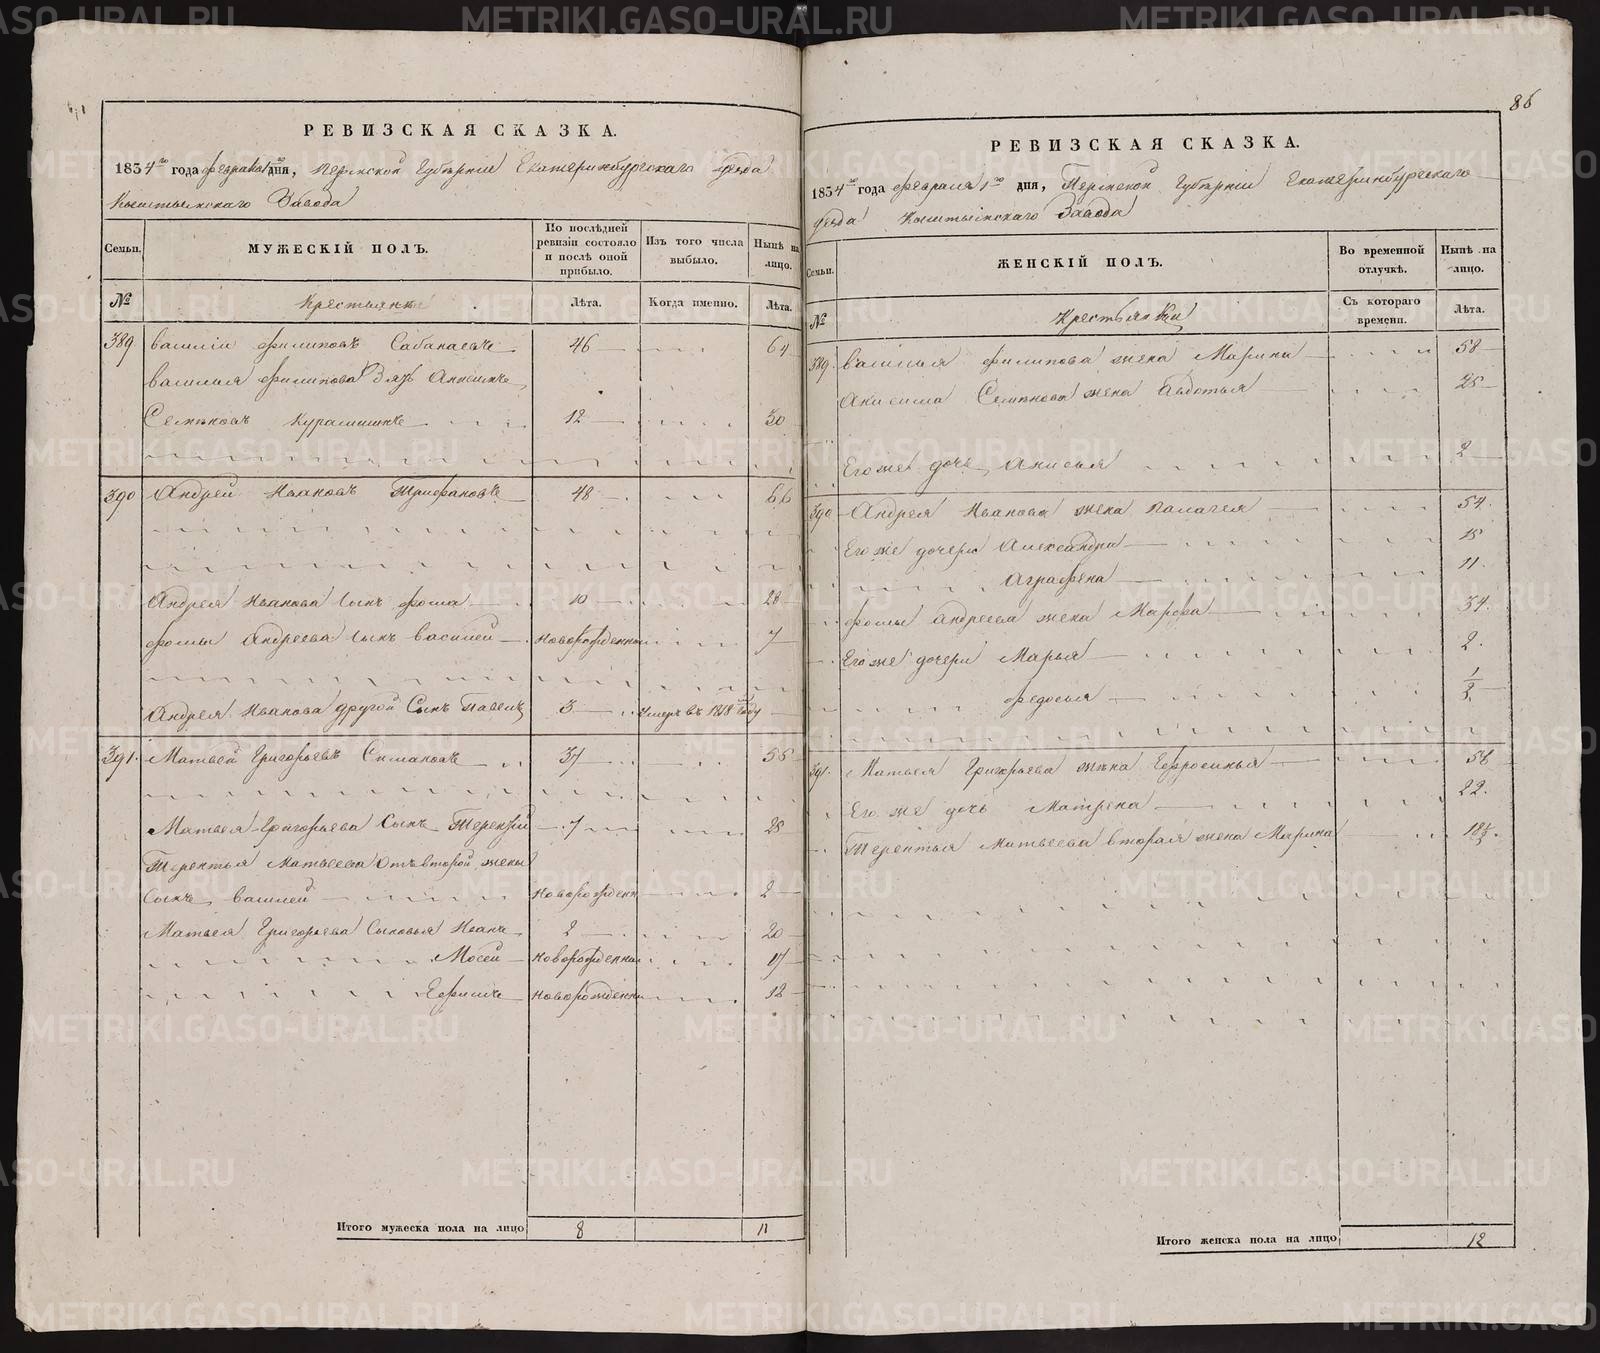 РЕВИЗСКАЯ СКАЗКА.
1834го года февраля 1го дня, Пермской Губернии Екатеринбургского уезда
Кыштымского Завода
Семьи.
МУЖЕСКІЙ ПОЛЪ.
По послѣдней ревизіи состояло и послѣ оной прибыло.
Изъ того числа выбыло.
Нынѣ на лицо.
№
Крестьяне
Лѣта.
Когда именно.
Лѣта.
389 Василiи Филиповъ 46 64
Василья Филипова Зять
Семеновъ 12 30
390 Андрей Ивановъ Трифановъ 48 66
Андрея Иванова Сынъ Фома 10 28
Фомы Андреева Сынъ Василей Новорожденны 7
Андрея Иванова другой Сынъ Павелъ 3 умеръ въ 1818 Году
391. Матвей Григорьевъ Симановъ 37 55
Матвея Григорьева Сынъ Терентiй 7 28
Терентья Матвеева отъ второй жены
Сынъ Василей Новорожденны 2
Матвея Григорьева Сыновья Иванъ 2 20
Мосей Новорожденны 17
Ефимъ Новорожденны 12
Итого мужеска пола на лицо 8 11
86
РЕВИЗСКАЯ СКАЗКА.
1834го года февраля 1го дня, Пермской Губернии Екатеринбургского
уезда Кыштымского Завода
Семьи.
ЖЕНСКІЙ ПОЛЪ.
Во временной отлучкѣ.
Нынѣ на лицо.
№
Крестьянки
Съ котораго времени.
Лѣта.
389. Василья Филипова жена Марина 58
Анисима Семенова жена Авдотья 25
Его же дочь Анисья 2
390 Андрея Иванова жена Палагея 54.
Его же дочери Александра 15
Аграфена 11.
Фомы Андреева жена Марфа 34.
Его же дочери Марья 2.
Федосья 1/2
391. Матвея Григорьева жена Ефросинья 58
Его же дочь Матрена 22.
Терентья Матвеева вторая жена Марина
Итого женска пола на лицо 12
METRIKI.GASO-URAL.RU